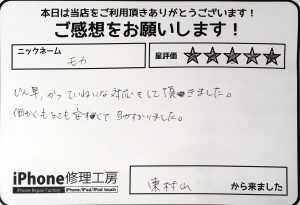 本日は当店をご利用頂きありがとうございます!
ご感想をお願いします!
ニックネーム
モカ
星評価
★★★★★
じん早、かつていねいな対応をして頂きました。
価かくもとても安くて助かりました。
iPhone修理工房
iPhone Repair Factory
iPhone/iPad/iPod touch
東村山
から来ました